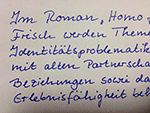 Im Roman, Homo
Frisch werden Theme
Identitätsproblematik
mit alten Partnerscha
Beziehungen sowie da
Erlebnisfähigkeit be